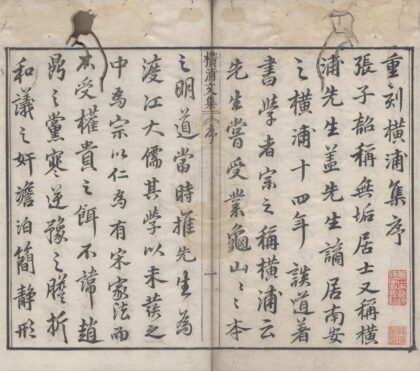 重刻橫浦集序
張子韶稱無垢居士又稱橫
浦先生盖先生謫居南安
之橫浦十四年談道著
書學者宗之稱橫浦云
先生嘗受業龜山〻本
橫浦文集 序 一
之明道當時推先生為
渡江大儒其學以未發之
中為宗以仁為有宋家法而
不受權貴之餌不諱趙
鼎之黨寒逆豫之膽折
和議之奸澹泊簡靜形